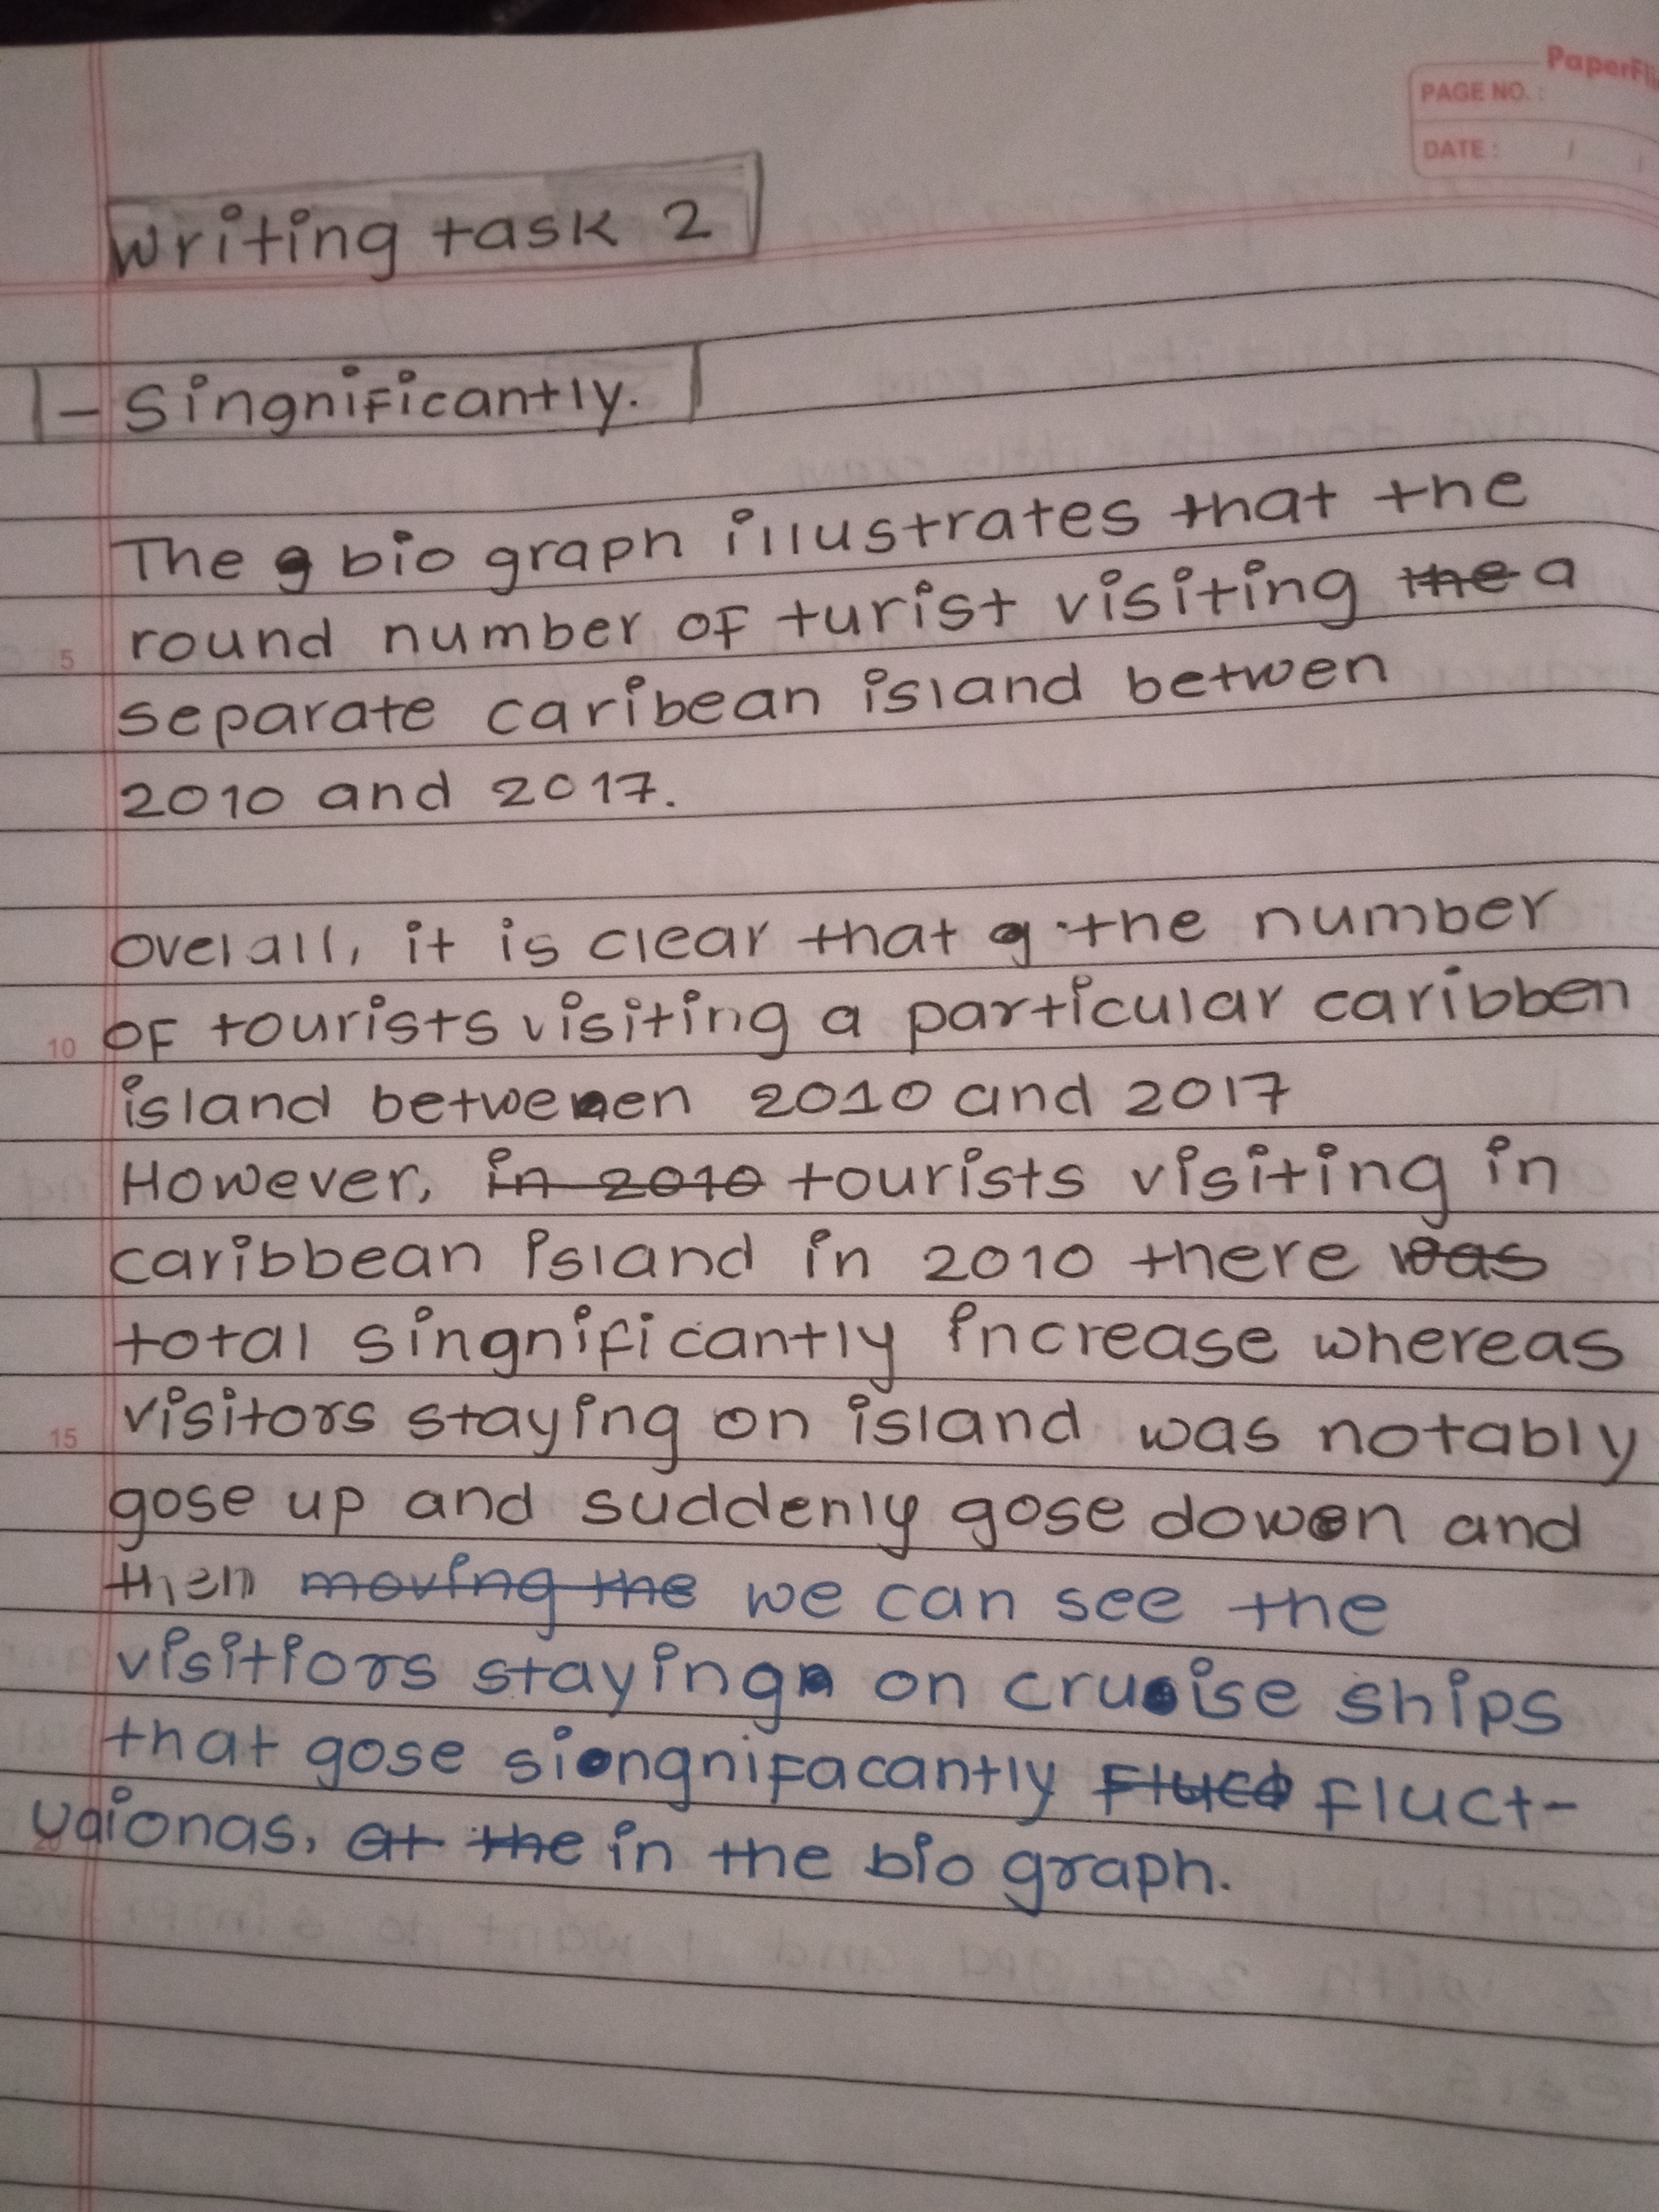 PaperFli
PAGE NO. :
DATE : / /
writing task 2
- Singnificantly.
The bio graph illustrates that the
round number of turist visiting the a
5
separate caribean island betwen
2010 and 2017.
overall, it is clear that the number
of tourists visiting a particular caribben
10
island between 2010 and 2017
However, in 2010 tourists visiting in
caribbean island in 2010 there was
total singnificantly increase whereas
visitors staying on island was notably
15
gose up and suddenly gose dowon and
then moving the we can see the
visitiors staying on cruise ships
that gose siongnifacantly fluct fluct-
uaionas, at the in the bio graph.